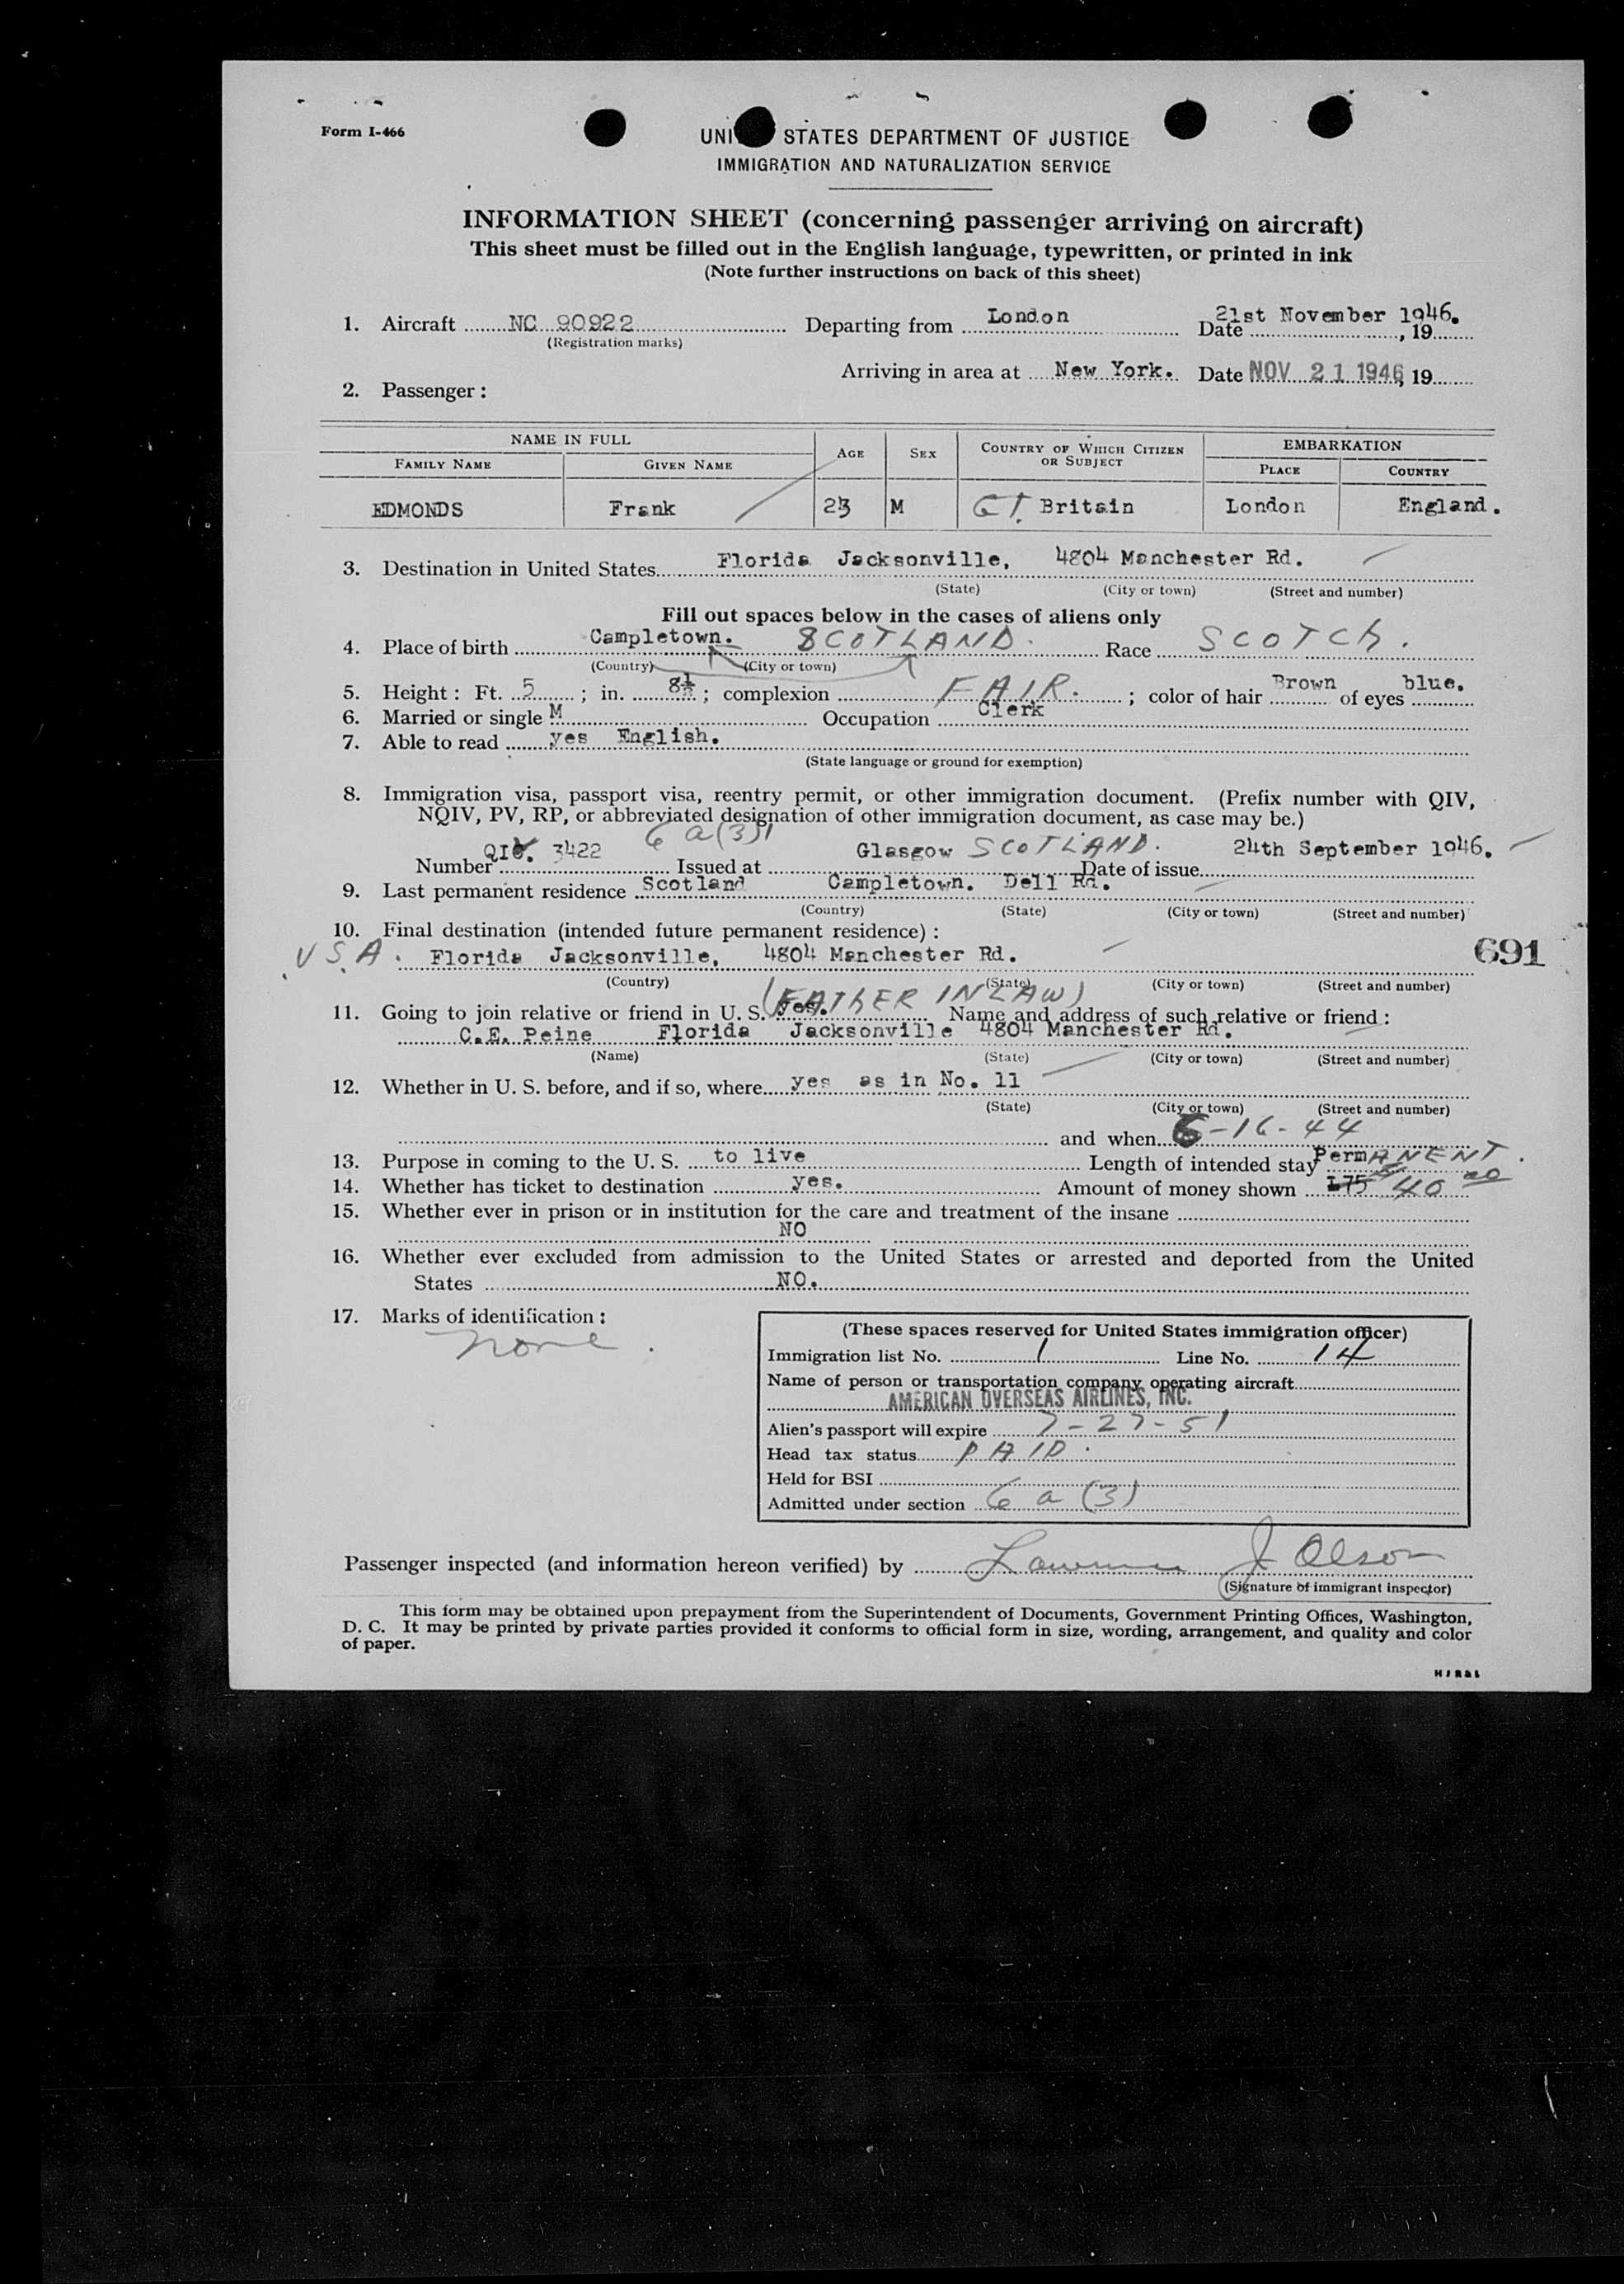 Form I-466
UNI STATES DEPARTMENT OF JUSTICE
IMMIGRATION AND NATURALIZATION SERVICE
INFORMATION SHEET (concerning passenger arriving on aircraft)
This sheet must be filled out in the English language, typewritten, or printed in ink
(Note further instructions on back of this sheet)
1. Aircraft NC 90922 Departing from London Date 21st November 1946. , 19
(Registration marks)
Arriving in area at New York. Date NOV 21 1946, 19
2. Passenger:
NAME IN FULL AGE SEX COUNTRY OF WHICH CITIZEN OR SUBJECT EMBARKATION
FAMILY NAME GIVEN NAME PLACE COUNTRY
EDMONDS Frank 23 M GT. Britain London England.
3. Destination in United States Florida Jacksonville, 4804 Manchester Rd.
(State) (City or town) (Street and number)
Fill out spaces below in the cases of aliens only
4. Place of birth Campletown. SCOTLAND. Race SCOTCH.
(Country) (City or town)
5. Height: Ft. 5 ; in. 8½ ; complexion FAIR. ; color of hair Brown of eyes blue.
6. Married or single M Occupation Clerk
7. Able to read yes English.
(State language or ground for exemption)
8. Immigration visa, passport visa, reentry permit, or other immigration document. (Prefix number with QIV,
NQIV, PV, RP, or abbreviated designation of other immigration document, as case may be.)
6 a (3)
Number 3422 Issued at Glasgow SCOTLAND. Date of issue 24th September 1946.
9. Last permanent residence Scotland Campletown. Dell Rd.
(Country) (State) (City or town) (Street and number)
10. Final destination (intended future permanent residence):
U.S.A. Florida Jacksonville, 4804 Manchester Rd.
691
(Country) (State) (City or town) (Street and number)
(FATHER IN LAW)
11. Going to join relative or friend in U. S. yes. Name and address of such relative or friend:
C.E. Peine Florida Jacksonville 4804 Manchester Rd.
(Name) (State) (City or town) (Street and number)
12. Whether in U. S. before, and if so, where yes as in No. 11
(State) (City or town) (Street and number)
and when 6-16-44
13. Purpose in coming to the U. S. to live Length of intended stay PermANENT.
14. Whether has ticket to destination yes. Amount of money shown 175 $40 00
15. Whether ever in prison or in institution for the care and treatment of the insane
NO
16. Whether ever excluded from admission to the United States or arrested and deported from the United
States NO.
17. Marks of identification:
none.
(These spaces reserved for United States immigration officer)
Immigration list No. 1 Line No. 14
Name of person or transportation company operating aircraft
AMERICAN OVERSEAS AIRLINES, INC.
Alien's passport will expire 7-27-51
Head tax status PAID.
Held for BSI
Admitted under section 6 a (3)
Passenger inspected (and information hereon verified) by Lawrence J Olson
(Signature of immigrant inspector)
This form may be obtained upon prepayment from the Superintendent of Documents, Government Printing Offices, Washington,
D. C. It may be printed by private parties provided it conforms to official form in size, wording, arrangement, and quality and color
of paper.